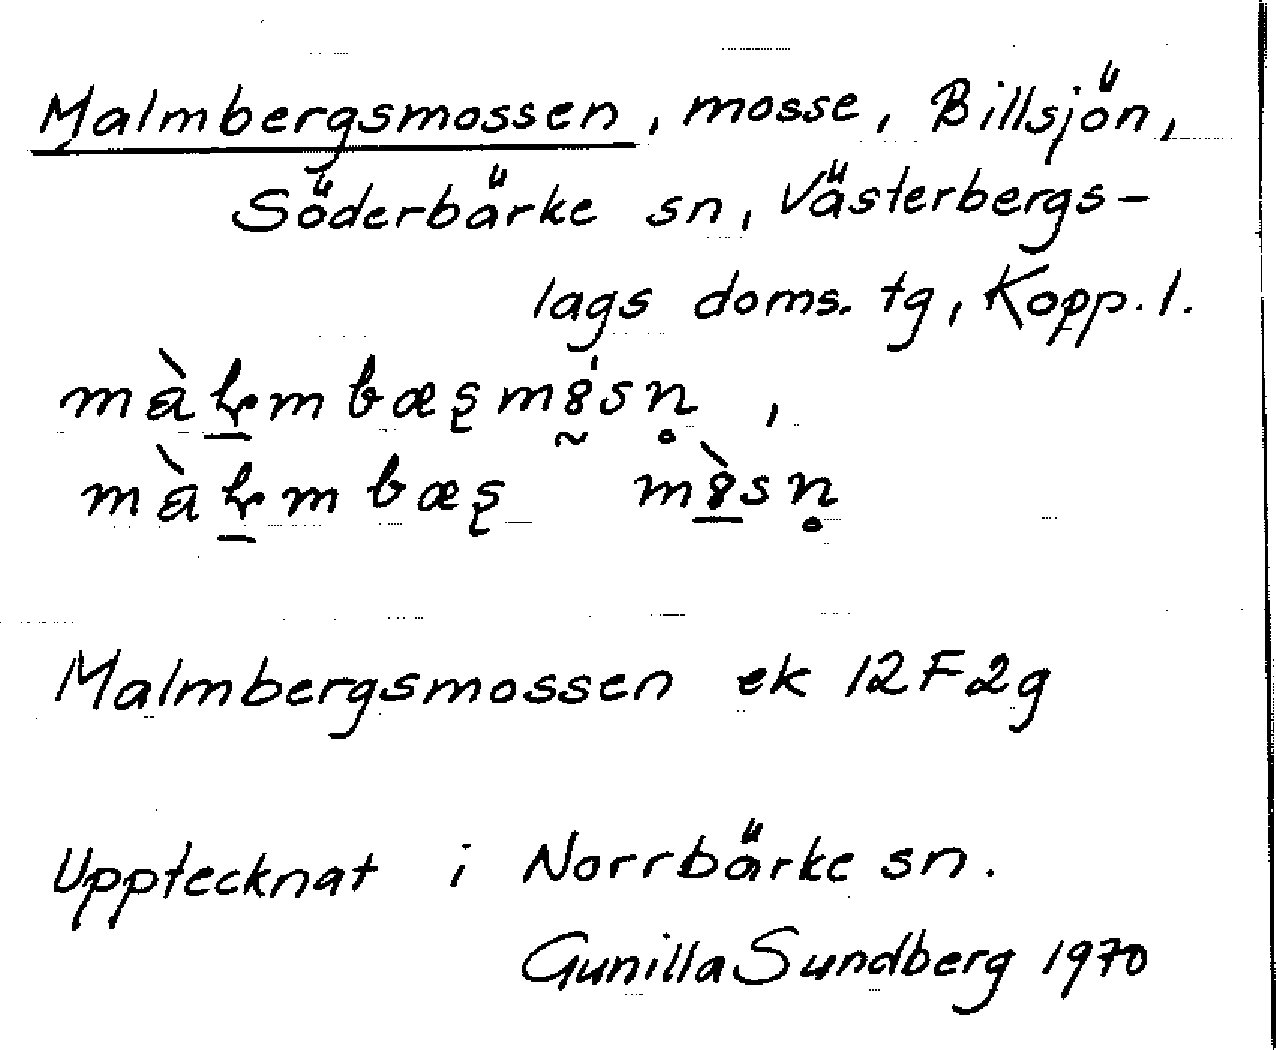 Malmbergsmossen, mosse, Billsjön,
Söderbärke sn, Västerbergs-
lags doms. tg, Kopp. l.
Malmbergsmossen ek 12F2g
Upptecknat i Norrbärke sn.
Gunilla Sundberg 1970